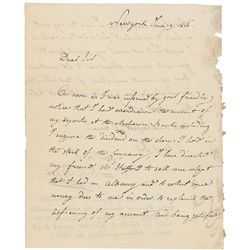 New york June 9, 1816
Dear Sir
As soon as I was informed by your friendly
notice that I had overdrawn the account of
my deposites at the Mechanics Bank including
I suppose the dividend on the shares I hold in
the stock of the Company, I have directed
my friend Mr Stafford to sell one
that I had in Albany and to collect some
money due to me in order to replenish the
deficiency of my account and being satisfied